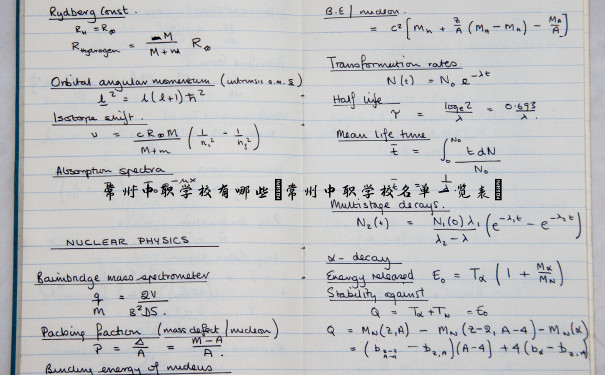 Rydberg Const.
R_H = R_∞
R_Hydrogen = M / (M + m) R_∞
Orbital angular momentum (intrinsic a.m. s)
l² = l(l+1)ħ²
Isotope shift.
ν = cR_∞M / (M+m) (1/n₁² - 1/n₂²)
Absorption spectra
常州中职学校有哪些 常州中职学校名单一览表
NUCLEAR PHYSICS
Bainbridge mass spectrometer
q/m = 2V / B²DS.
Packing fraction (mass defect / nucleon)
P = Δ/A = (M-A)/A.
Binding energy of nucleus
B.E / nucleon.
= c² [M_n + Z/A (M_H - M_n) - M_A/A]
Transformation rates
N(t) = N₀ e^{-λt}
Half life
τ = log_e 2 / λ = 0.693 / λ.
Mean life time
t̄ = ∫₀^{N₀} t dN / N₀
Multistage decays.
N₂(t) = N₁(0) λ₁ / (λ₂ - λ) (e^{-λ₁t} - e^{-λ₂t})
α - decay
Energy released E₀ = T_α (1 + M_α/M_N)
Stability against
Q = T_α + T_N = E₀
Q = M_N(Z,A) - M_N(Z-2, A-4) - M_N(α)